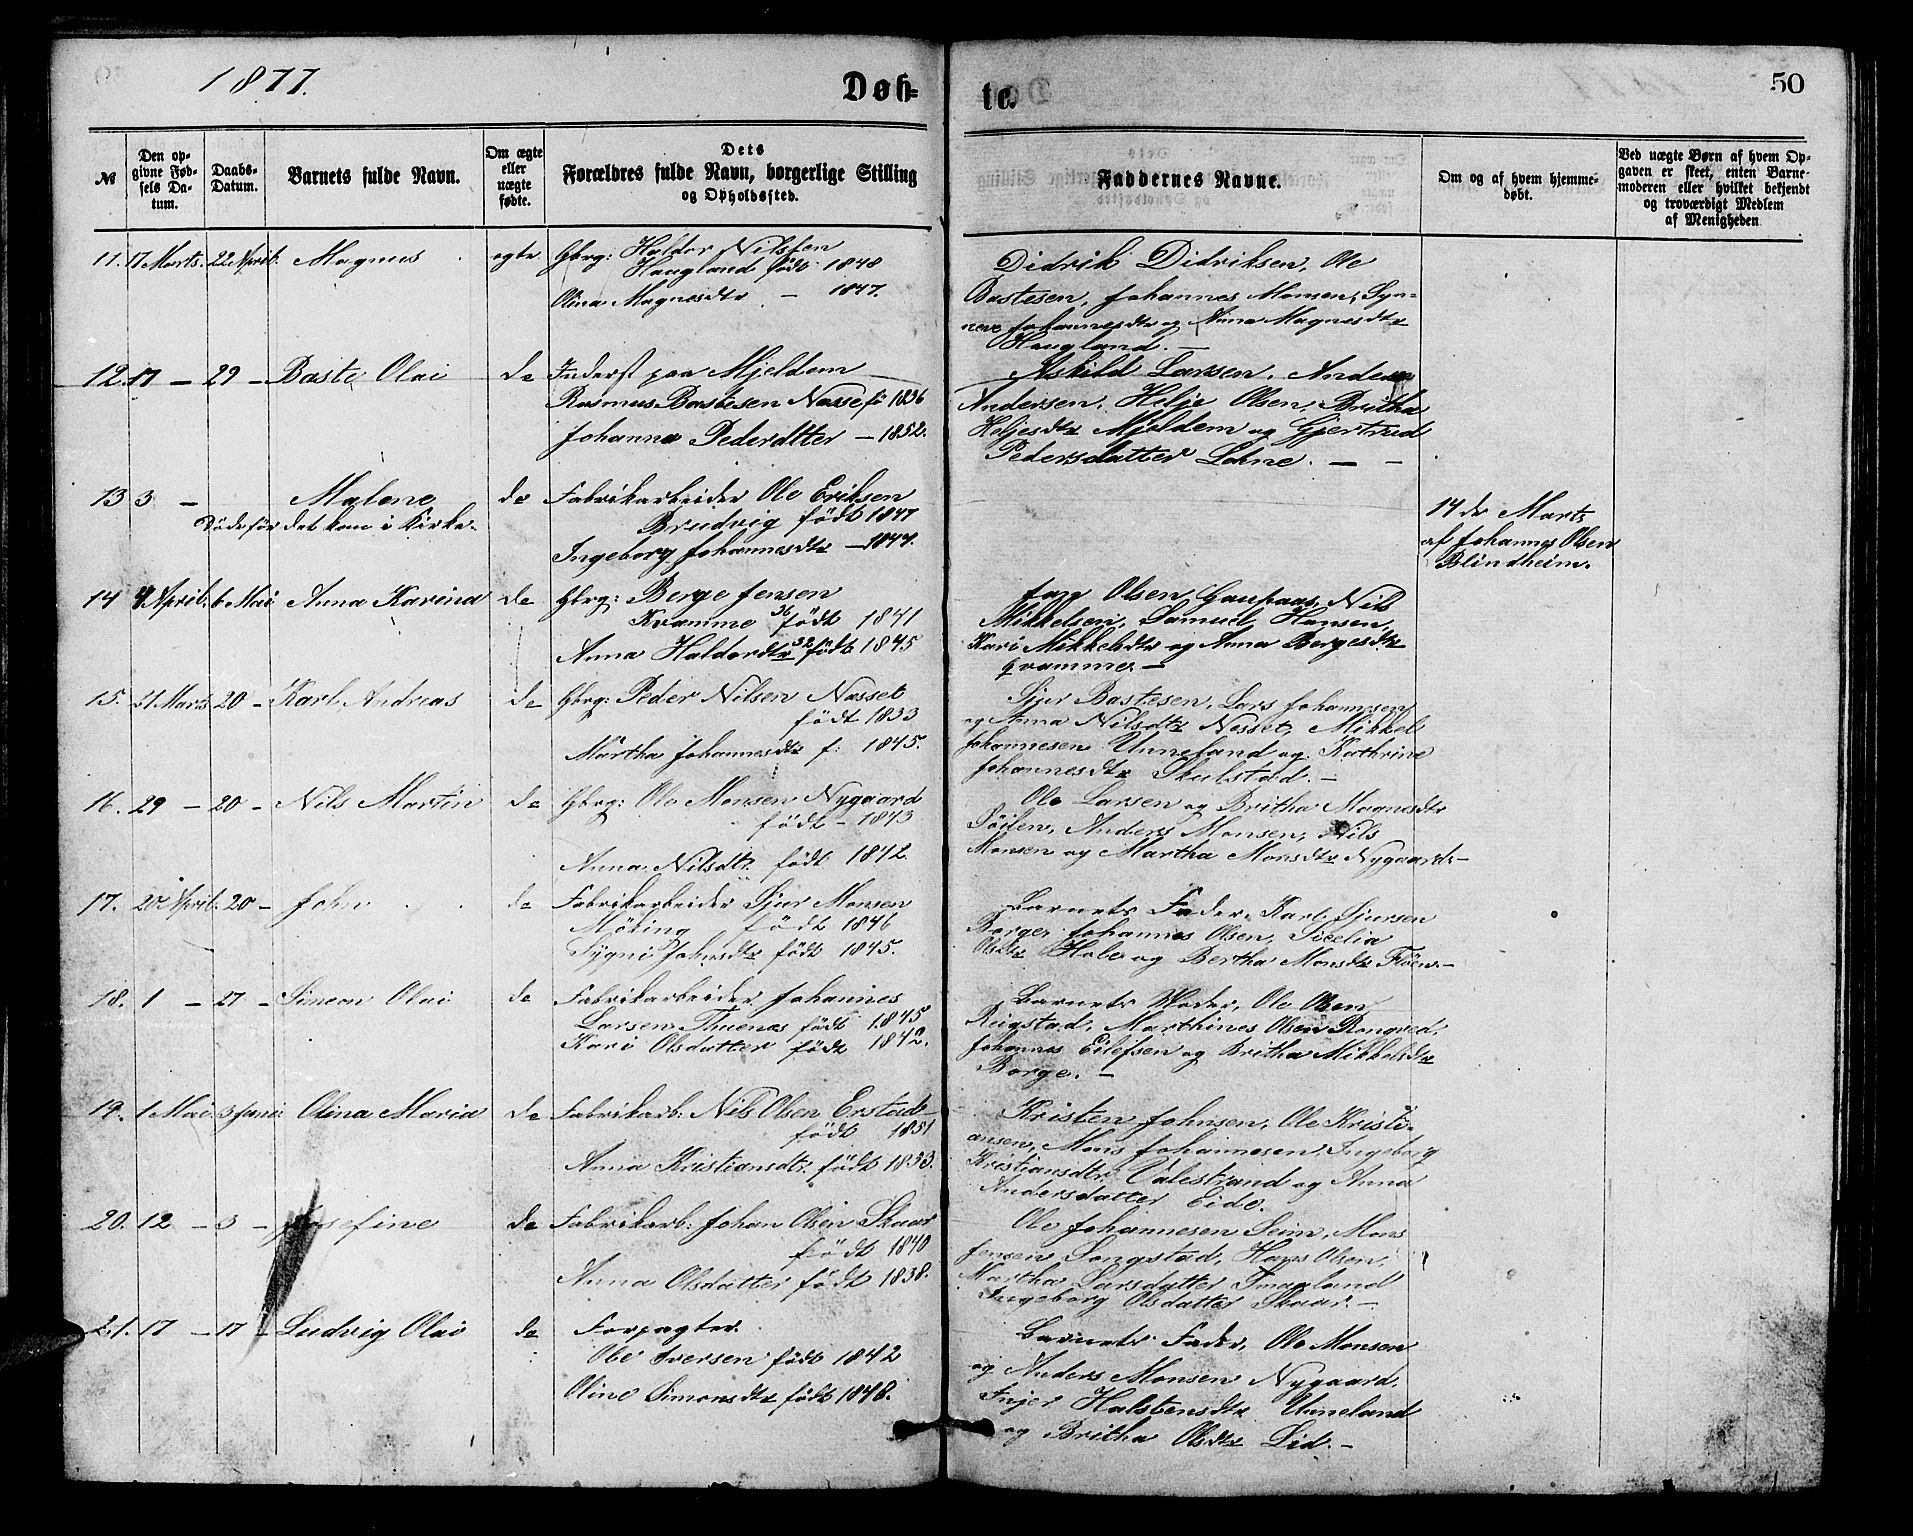 1877.
Døb=
te.
50
№
Den op-
givne Fød-
sels Da-
tum.
Daabs-
Datum.
Barnets fulde Navn.
Om ægte
eller
uægte
fødte.
Dets
Forældres fulde Navn, borgerlige Stilling
og Opholdssted.
Faddernes Navne.
Om og af hvem hjemme-
døbt.
Ved uægte Børn af hvem Op-
gaven er skeet, enten Barne-
moderen eller hvilket bekjendt
og troværdigt Medlem
af Menigheden
11. 17 Marts. 22 April. Magnus egte Gbrg: Haldor Nilssen
Haugland født 1848
Olina Magnesdtr — 1847.
Didrik Didriksen, Ole
Bastesen, Johannes Monsen, Syn-
neve Johannesdtr og Anna Magnesdtr
Haugland. —
12. 17 — 29 — Baste Olai do Inderst paa Mjeldem
Rasmus Bastesen Nesse fø 1836
Johanna Pederdtter — 1852.
Askild Larsen, Anders
Andersen, Helje Olsen, Britha
Heljesdtr Mjeldem og Gjertrud
Pedersdatter Lone. — —
13 3 — Malene do Fabrikarbeider Ole Eriksen
Døde før det kom i Kirke. Brudvig født 1847
Ingeborg Johannesdtr — 1847.
14 de Marts
af Johannes Olsen
Blindheim.
14 4 April. 6 Mai Anna Karina do Gbrg: Berge Jensen
Kvamme 36 født 1841
Anna Haldordtr 32 født 1845
Olsen Gaupaas, Nils
Mikkelsen, Samuel Hansen,
Kari Mikkelsdtr og Anna Bergesdtr
Qvamme. —
15. 31 Mars 20 — Karl Andreas do Gbrg: Peder Nilsen Nesset
født 1833
Martha Johannesdtr f: 1845.
Sjur Bastesen, Lars Johannesen
og Anna Nilsdtr Nesset, Mikkel
Johannesen Unneland og Kathrine
Johannesdtr Skulstad. —
16. 29 — 20 — Nils Martin do Gbrg: Ole Monsen Nygaard
født — 1843
Anna Nilsdtr. født 1842.
Ole Larsen og Britha Magnesdtr
Anders Monsen, Nils
Monsen og Martha Monsdtr Nygaard. —
17. 20 April. 20 — John do Fabrikarbeider Sjur Monsen
Møking født 1846
Sygni Johnsdtr født 1845.
Barnets Fader, Karl Sjursen
Borge, Johannes Olsen, Sicelia
Olsdtr Hole og Bertha Monsdtr Fløen. —
18. 1 — 27 — Simeon Olai do Fabrikarbeider Johannes
Larsen Thuenæs født 1845
Kari Olsdatter født 1842.
Barnets Moder, Ole Olsen
Reigstad, Marthines Olsen Rongved,
Johannes Eilefsen og Britha Mikkelsdtr
Borge. —
19. 1 Mai 3 Juni Olina Maria do Fabrikarb: Nils Olsen Erstad
født 1851
Anna Kristiansdtr. født 1853.
Kristen Johnsen, Ole Kristi-
ansen, Mons Johannesen, Ingeborg
Kristiansdtr Valestrand og Anna
Andersdatter Eide.
20. 12 — 3 — Josefine do Fabrikarb: Johan Olsen Skaar
født 1840
Anna Olsdatter født 1838.
Ole Johannesen Seim, Mons
Jensen Songstad, Hans Olsen,
Martha Larsdatter
Ingeborg Olsdatter Skaar. —
21. 17 — 17 — Ludvig Olai do Forpagter
Ole Iversen født 1842
Oline Simonsdtr født 1848.
Barnets Fader, Ole Monsen
og Anders Monsen Nygaard,
Inger Halstensdtr Unneland
og Britha Olsdtr Lid. —